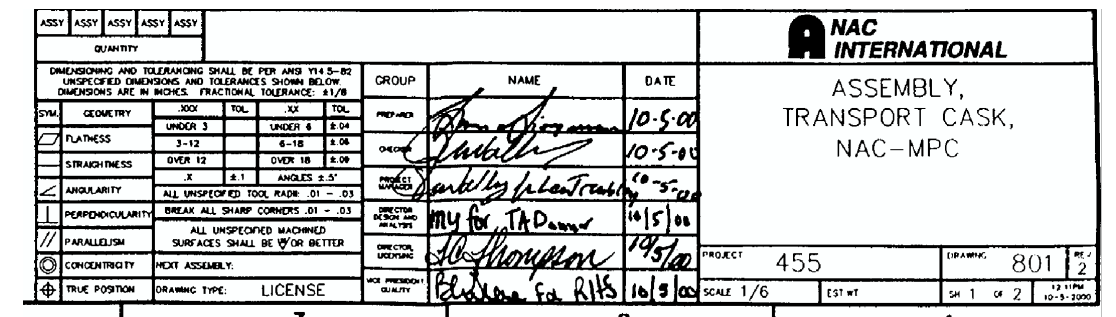 ASSY ASSY ASSY ASSY ASSY
QUANTITY
DIMENSIONING AND TOLERANCING SHALL BE PER ANSI Y14.5-82
UNSPECIFIED DIMENSIONS AND TOLERANCES SHOWN BELOW.
DIMENSIONS ARE IN INCHES. FRACTIONAL TOLERANCE: ±1/8
SYM. GEOMETRY .XXX TOL. .XX TOL.
UNDER 3 UNDER 6 ±.04
FLATNESS 3-12 6-18 ±.06
STRAIGHTNESS OVER 12 OVER 18 ±.09
.X ±.1 ANGLES ±.5°
ANGULARITY ALL UNSPECIFIED TOOL RADII: .01 - .03
PERPENDICULARITY BREAK ALL SHARP CORNERS .01 - .03
PARALLELISM ALL UNSPECIFIED MACHINED
SURFACES SHALL BE OR BETTER
CONCENTRICITY NEXT ASSEMBLY:
TRUE POSITION DRAWING TYPE: LICENSE
GROUP NAME DATE
PREPARER 10-5-00
CHECKER 10-5-00
PROJECT MANAGER 10-5-00
DIRECTOR DESIGN AND ANALYSIS for TAD 10/5/00
DIRECTOR, LICENSING Thompson 10/5/00
VICE PRESIDENT QUALITY for RHS 10/5/00
NAC
INTERNATIONAL
ASSEMBLY,
TRANSPORT CASK,
NAC-MPC
PROJECT 455 DRAWING 801 REV 2
SCALE 1/6 EST WT SH 1 OF 2 12:11PM
10-5-2000